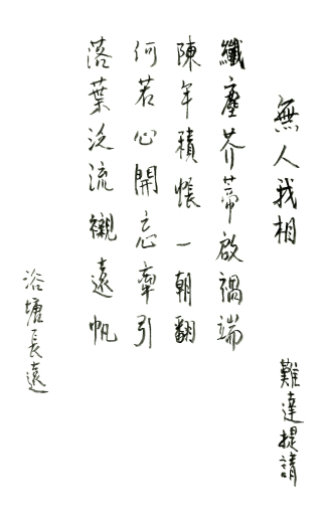 無人我相
難達提請
纖塵芥蒂啟禍端
陳年積帳一朝翻
何若心開忘牽引
落葉泛流襯遠帆
浴塘長遠